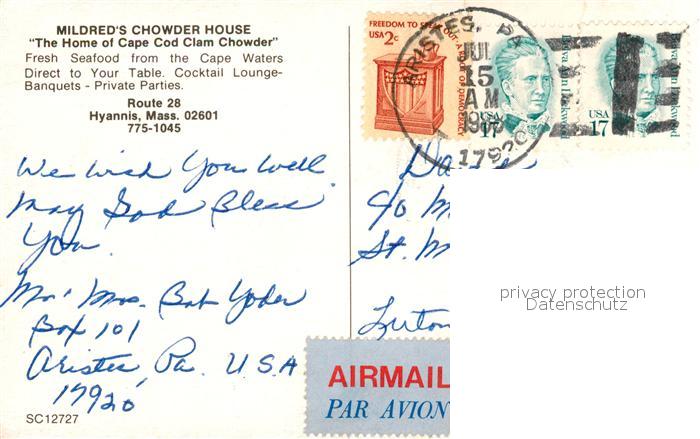 MILDRED'S CHOWDER HOUSE
"The Home of Cape Cod Clam Chowder"
Fresh Seafood from the Cape Waters
Direct to Your Table. Cocktail Lounge-
Banquets - Private Parties.
Route 28
Hyannis, Mass. 02601
775-1045
FREEDOM TO SPEAK OUT-A ROOT OF DEMOCRACY
USA 2c
ARISTES, PA
JUL
15
AM
17920
USA
17
Belva Ann Lockwood
USA
17
Belva Ann Lockwood
We wish You well
May God Bless
You.
Mr. Mrs. Bob Yoder
Box 101
Aristes, Pa. U.S.A
17920
c/o M
St. M
Luton
privacy protection
Datenschutz
AIRMAIL
PAR AVION
SC12727